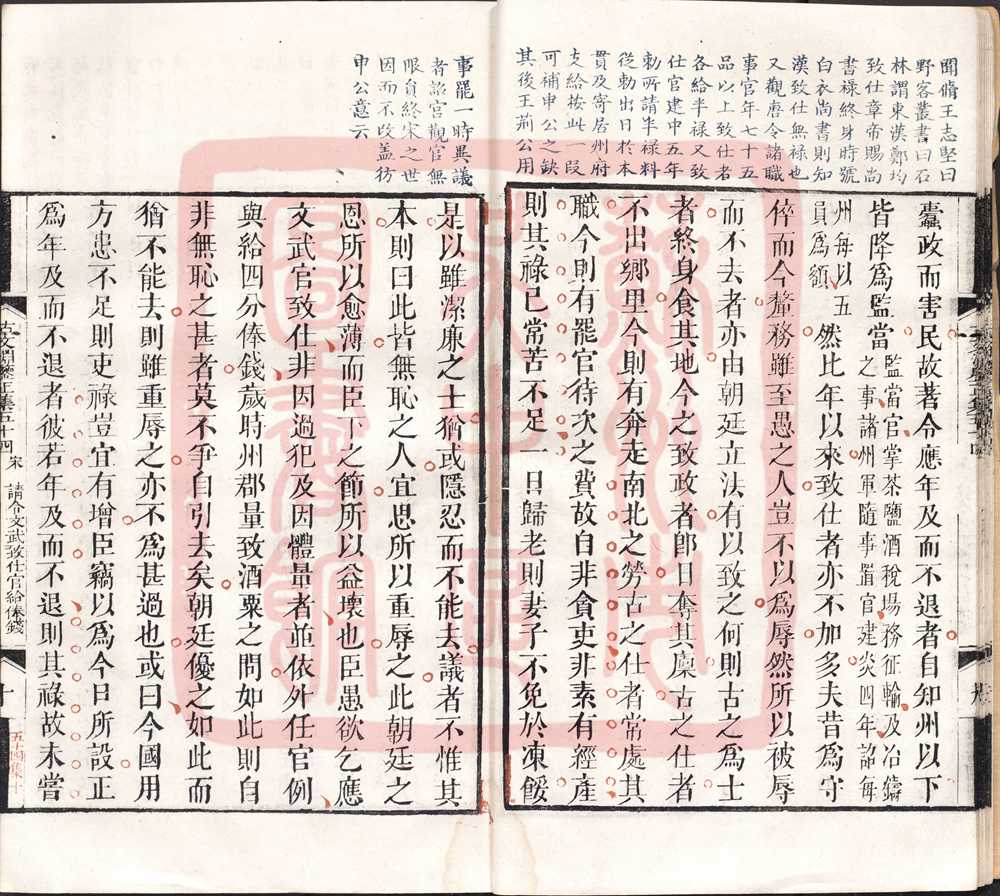 聞脩王志堅曰
野客叢書曰石
林謂東漢鄭均
致仕章帝賜尚
書祿終身時號
白衣尚書則知
漢致仕無祿也
又觀唐令諸職
事官年七十五
品以上致仕者
各給半祿又致
仕官建中五年
勅所請半祿料
從勅出日於本
貫及寄居州府
支給按此一段
可補申公之缺
其後王荊公用
蠹政而害民故著令應年及而不退者自知州以下
皆降為監當
監當官掌茶鹽酒稅場務征輸及冶鑄
之事諸州軍隨事置官建炎四年詔每
州每以五
員為額
然比年以來致仕者亦不加多夫昔為守
倅而今釐務雖至愚之人豈不以為辱然所以被辱
而不去者亦由朝廷立法有以致之何則古之為士
者終身食其地今之致政者卽日奪其廩古之仕者
不出鄉里今則有奔走南北之勞古之仕者常處其
職今則有罷官待次之費故自非貪吏非素有經產
則其祿已常苦不足一日歸老則妻子不免於凍餒
事罷一時異議
者詔宮觀官無
限員終宋之世
因而不改盖彷
申公意云
是以雖潔廉之士猶或隱忍而不能去議者不惟其
本則曰此皆無恥之人宜思所以重辱之此朝廷之
恩所以愈薄而臣下之節所以益壞也臣愚欲乞應
文武官致仕非因過犯及因體量者並依外任官例
與給四分俸錢歲時州郡量致酒粟之問如此則自
非無恥之甚者莫不爭自引去矣朝廷優之如此而
猶不能去則雖重辱之亦不為甚過也或曰今國用
方患不足則吏祿豈宜有增臣竊以為今日所設正
為年及而不退者彼若年及而不退則其祿故未嘗
古文淵鑒正集五十四 宋 請令文武致仕官給俸錢 十
五十四集十